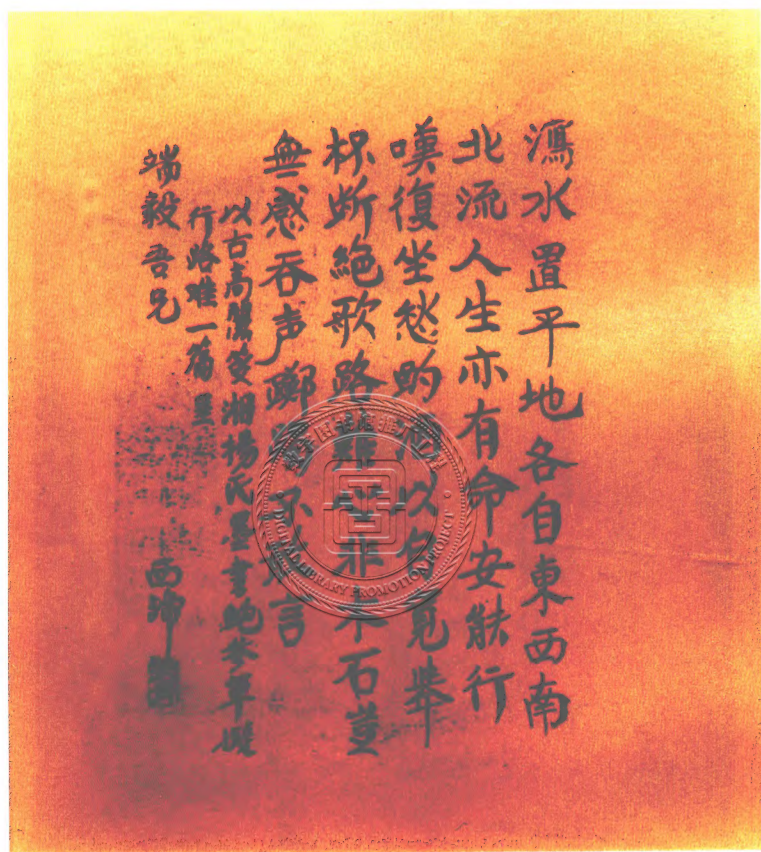 瀉水置平地各自東西南
北流人生亦有命安能行
嘆復坐愁酌酒以自寬舉
杯断絶歌路難心非木石豈
無感吞声躑躅不敢言
以古高麗箋湘楊氏墨書鮑参軍擬
行路難一篇呈
端毅吾兄
西
数字图书馆推广工程
DIGITAL LIBRARY PROMOTION PROJECT